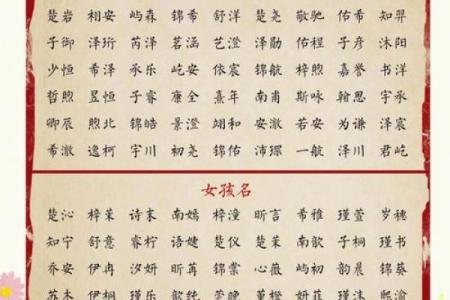 楚岩 相安 屿森 锦希 舒洋 楚尧 敬驰 佑希 知羿
子御 泽珩 芮泽 茗涵 艺澄 泽勋 佑程 子彦 沐阳
少恒 希泽 承乐 屹安 依宸 锦航 梓煦 嘉誉 书洋
哲煦 昱恒 子睿 康全 熹年 南甫 斯咏 翰思 宇承
卿辰 煦北 锦皓 景澄 翊和 安澈 若安 为谦 泽宸
希澈 逸柯 宇川 初尧 锦佑 沛琛 一航 泽川 君屹
女孩名
楚沁 梓茉 诗末 南嫣 梓潼 昕言 希雅 瑾萱 岁穗
知宁 舒意 睿柠 语婕 楚仪 楚茉 南歆 子桐 瑾书
乔安 伊冉 汐妍 昕苒 锦棠 心薇 屿昕 韵晨 锦葵
苏木 伊桐 瑾乐 歆 晚 槿 初 瑾 熙渝